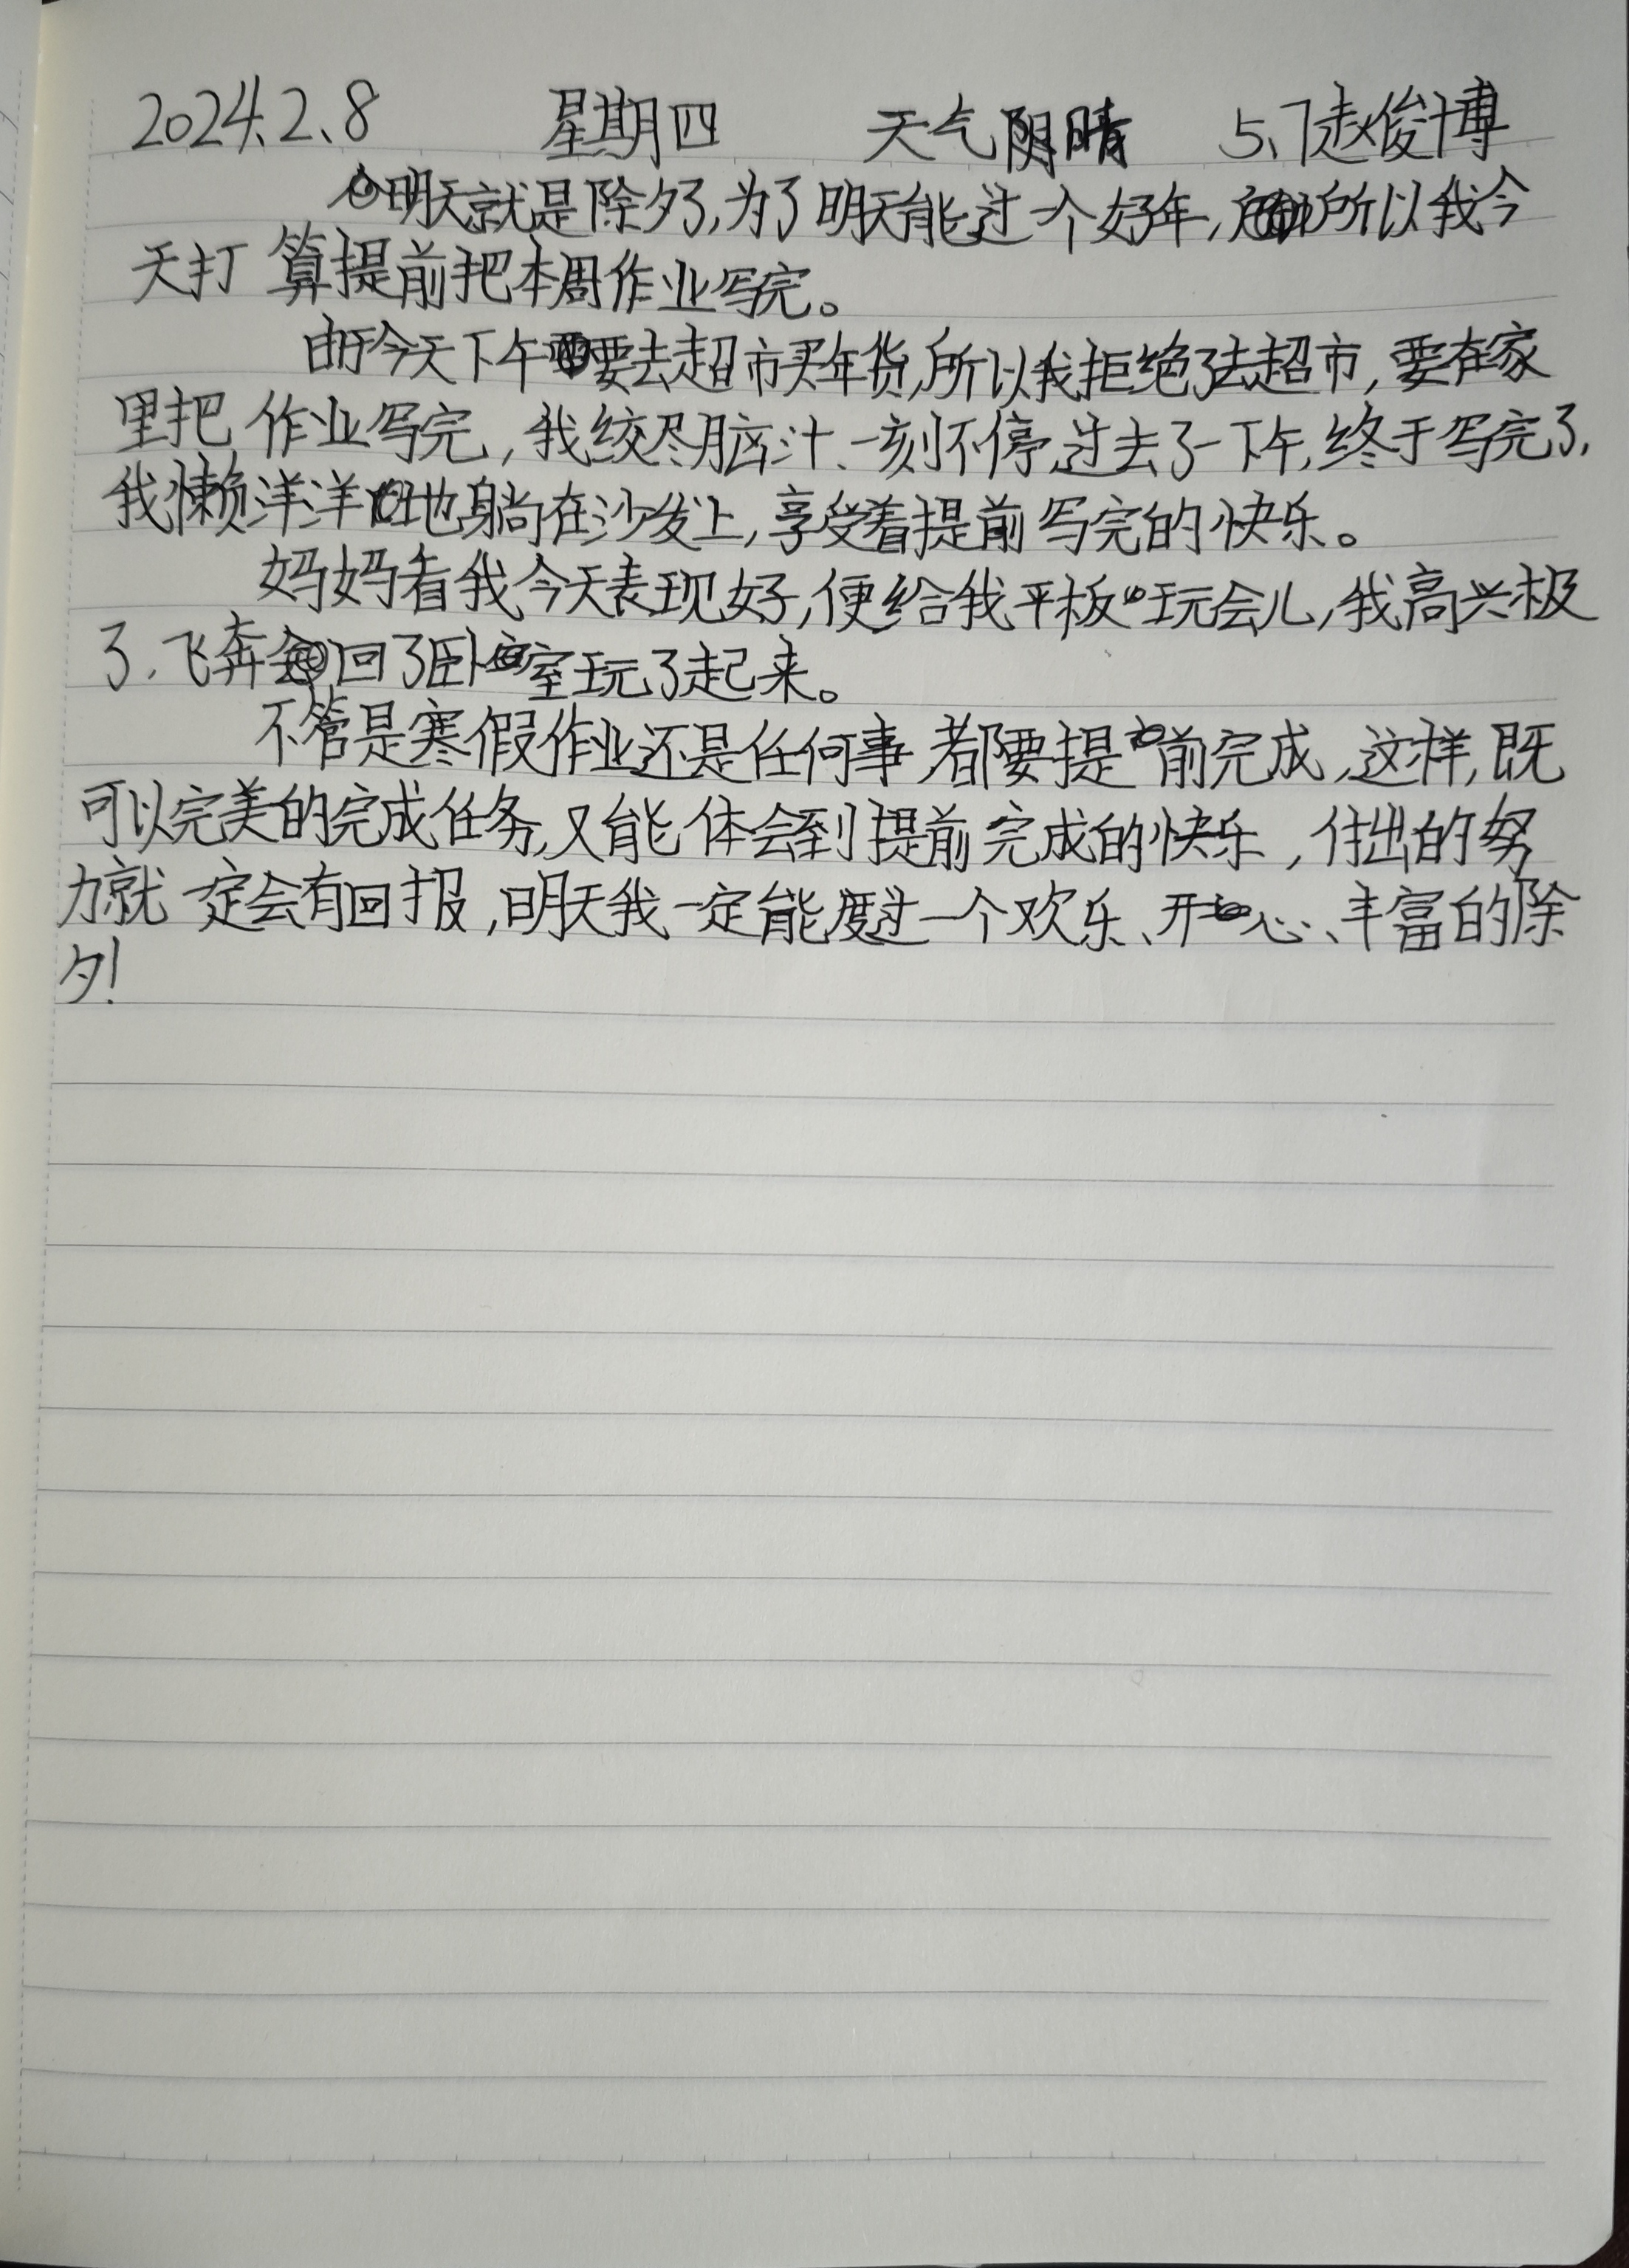 2024.2.8 星期四 天气阴晴 5.7赵俊博
明天就是除夕了,为了明天能过一个好年,所以我今
天打算提前把本周作业写完。
由于今天下午要去超市买年货,所以我拒绝了去超市,要在家
里把作业写完,我绞尽脑汁、一刻不停,过去了一下午,终于写完了,
我懒洋洋地躺在沙发上,享受着提前写完的快乐。
妈妈看我今天表现好,便给我平板玩会儿,我高兴极
了.飞奔回了卧室玩了起来。
不管是寒假作业还是任何事,都要提前完成,这样,既
可以完美的完成任务,又能体会到提前完成的快乐,付出的努
力就一定会有回报,明天我一定能度过一个欢乐、开心、丰富的除
夕!